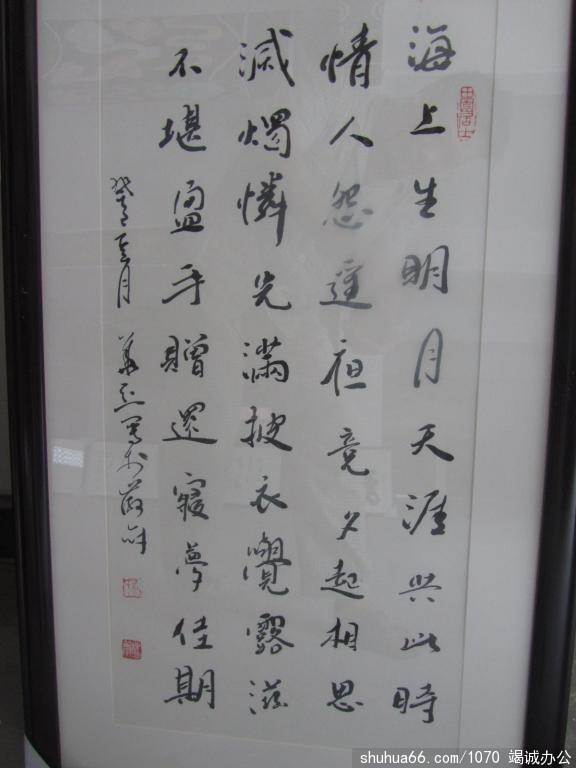 海上生明月天涯共此時
情人怨遙夜竟夕起相思
滅燭憐光滿披衣覺露滋
不堪盈手贈還寢夢佳期
月
shuhua66.com/1070 竭诚办公